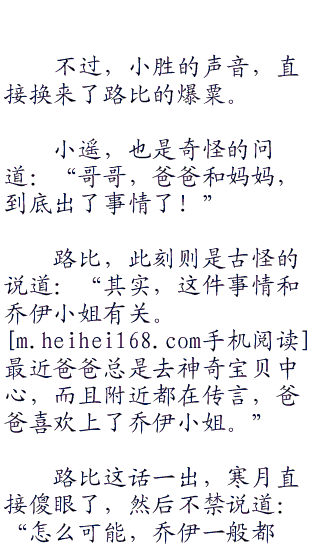 不过，小胜的声音，直
接换来了路比的爆粟。
小遥，也是奇怪的问
道：“哥哥，爸爸和妈妈，
到底出了事情了！”
路比，此刻则是古怪的
说道：“其实，这件事情和
乔伊小姐有关。
[m.heihei168.com手机阅读]
最近爸爸总是去神奇宝贝中
心，而且附近都在传言，爸
爸喜欢上了乔伊小姐。”
路比这话一出，寒月直
接傻眼了，然后不禁说道：
“怎么可能，乔伊一般都